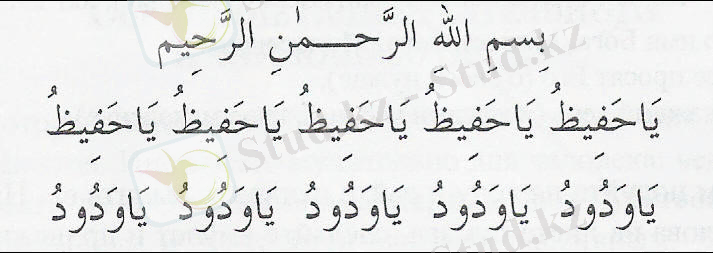 بِسْمِ اللهِ الرَّحْـــمٰنِ الرَّحِيْمِ
يَاحَفِيظُ يَاحَفِيظُ يَاحَفِيظُ يَاحَفِيظُ يَاحَفِيظُ
يَاوَدُودُ يَاوَدُودُ يَاوَدُودُ يَاوَدُودُ يَاوَدُودُ
Stud.kz
Stud.kz
Stud.kz